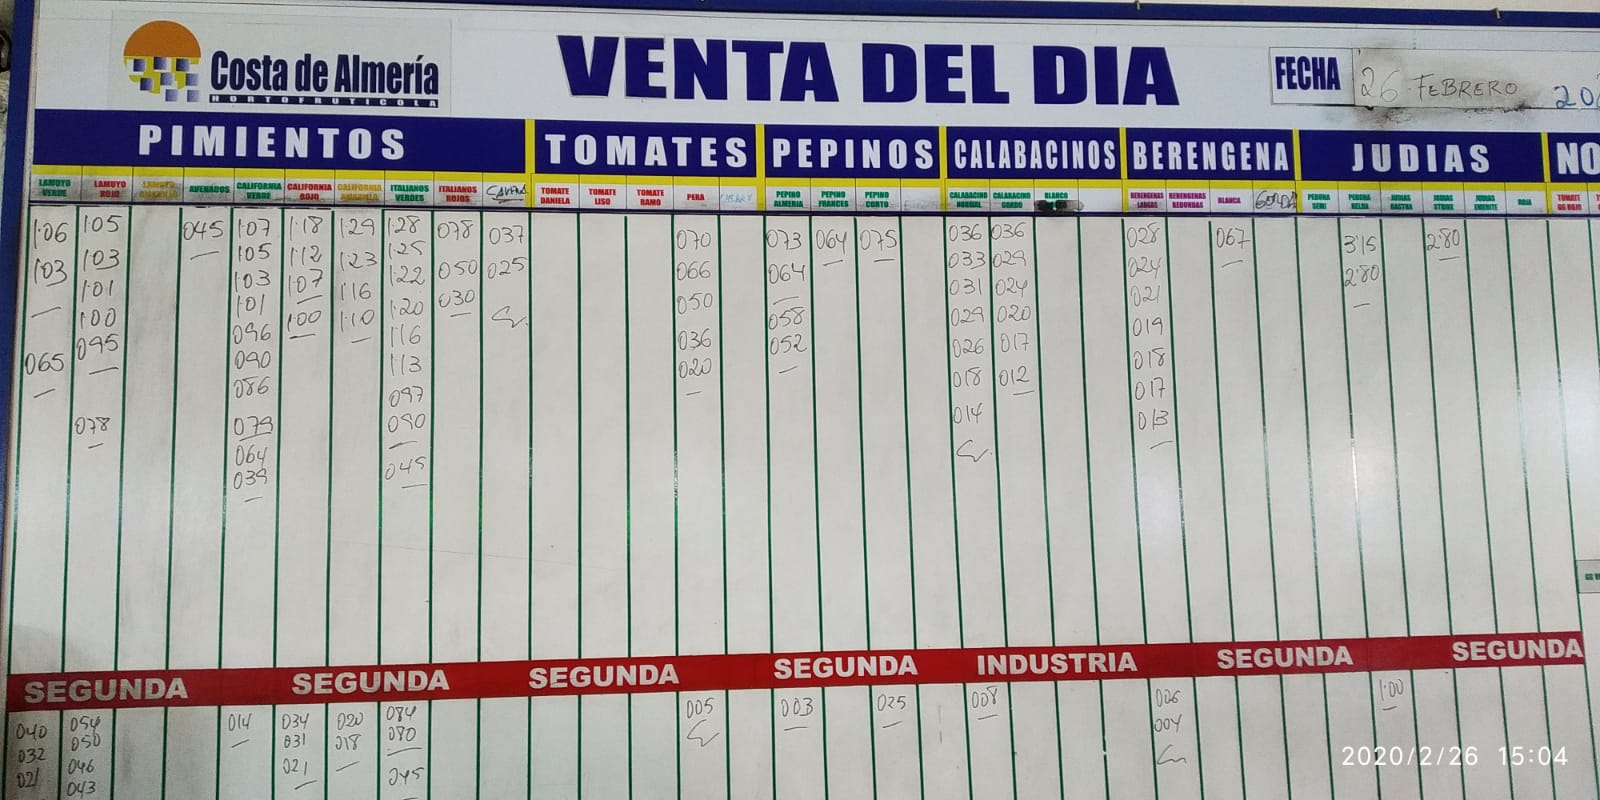 Costa de Almería
HORTOFRUTICOLA
VENTA DEL DIA
FECHA 26 FEBRERO 20
PIMIENTOS TOMATES PEPINOS CALABACINOS BERENGENA JUDIAS NO
LAMUYO VERDE LAMUYO ROJO LAMUYO AMARILLO AVENADOS CALIFORNIA VERDE CALIFORNIA ROJO CALIFORNIA AMARILLO ITALIANOS VERDES ITALIANOS ROJOS TOMATE DANIELA TOMATE LISO TOMATE RAMO PERA CHERRY PEPINO ALMERIA PEPINO FRANCES PEPINO CORTO CALABACINO NORMAL CALABACINO GORDO BLANCO BERENGENAS LARGAS BERENGENAS REDONDAS BLANCA GORDA PERONA SEMI PERONA HELDA JUDIAS RASTRA JUDIAS STRIKE JUDIAS EMERITE ROJA TOMATE GG ROJO
1·06 1·05 045 1·07 1·18 1·29 1·28 078 037 070 073 064 075 036 036 028 067 3'15 2'80
103 103 105 1·12 1·23 1·25 050 025 066 064 033 029 024 2'80
1·01 103 1·07 1·16 1·22 030 050 058 031 024 021
1·00 1·01 1·00 1·10 1·20 036 052 029 020 019
065 095 096 1·16 020 026 017 018
078 090 1·13 018 012 017
086 097 014 013
079 090
064 045
039
SEGUNDA SEGUNDA SEGUNDA SEGUNDA INDUSTRIA SEGUNDA SEGUNDA
040 054 014 034 020 084 005 003 025 008 006 1·00
032 050 031 018 080 004
021 046 021 045
043
2020/2/26 15:04